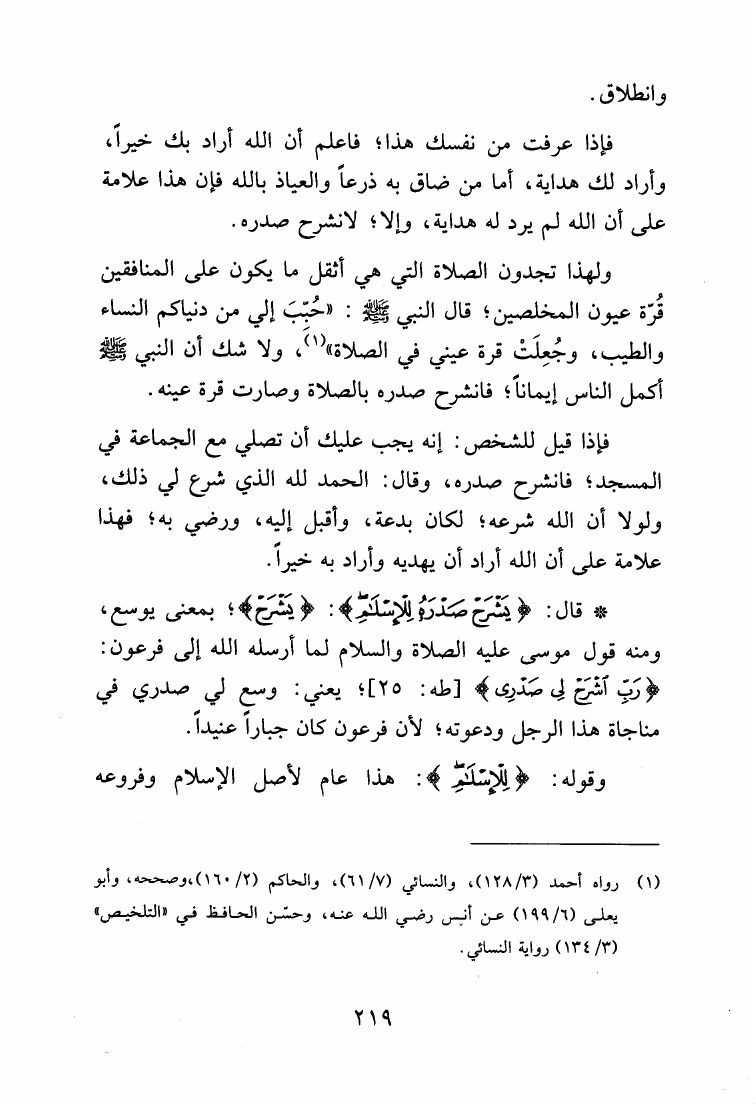 وانطلاق.
فإذا عرفت من نفسك هذا؛ فاعلم أن الله أراد بك خيراً،
وأراد لك هداية، أما من ضاق به ذرعاً والعياذ بالله فإن هذا علامة
على أن الله لم يرد له هداية، وإلا؛ لانشرح صدره.
ولهذا تجدون الصلاة التي هي أثقل ما يكون على المنافقين
قُرّة عيون المخلصين؛ قال النبي ﷺ : «حُبِّبَ إلي من دنياكم النساء
والطيب، وجُعِلَتْ قرة عيني في الصلاة»(١)، ولا شك أن النبي ﷺ
أكمل الناس إيماناً؛ فانشرح صدره بالصلاة وصارت قرة عينه.
فإذا قيل للشخص: إنه يجب عليك أن تصلي مع الجماعة في
المسجد؛ فانشرح صدره، وقال: الحمد لله الذي شرع لي ذلك،
ولولا أن الله شرعه؛ لكان بدعة، وأقبل إليه، ورضي به؛ فهذا
علامة على أن الله أراد أن يهديه وأراد به خيراً.
* قال: ﴿يَشْرَحْ صَدْرَهُ لِلْإِسْلَٰمِ﴾: ﴿يَشْرَحْ﴾؛ بمعنى يوسع،
ومنه قول موسى عليه الصلاة والسلام لما أرسله الله إلى فرعون:
﴿رَبِّ ٱشْرَحْ لِى صَدْرِى﴾ [طه: ٢٥]؛ يعني: وسع لي صدري في
مناجاة هذا الرجل ودعوته؛ لأن فرعون كان جباراً عنيداً.
وقوله: ﴿لِلْإِسْلَٰمِ﴾: هذا عام لأصل الإسلام وفروعه
(١) رواه أحمد (١٢٨/٣)، والنسائي (٦١/٧)، والحاكم (١٦٠/٢)،وصححه، وأبو
يعلى (١٩٩/٦) عن أنس رضي الله عنه، وحسّن الحافظ في «التلخيص»
(١٣٤/٣) رواية النسائي.
٢١٩